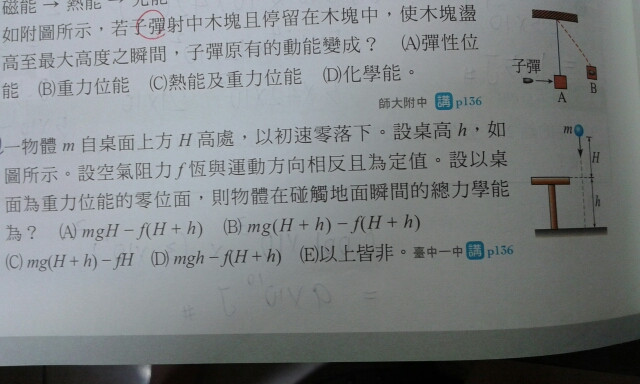 磁能 → 熱能 →
如附圖所示，若子彈射中木塊且停留在木塊中，使木塊盪
高至最大高度之瞬間，子彈原有的動能變成？ (A)彈性位
能 (B)重力位能 (C)熱能及重力位能 (D)化學能。
師大附中 講 p136
子彈
A
B
一物體 m 自桌面上方 H 高處，以初速零落下。設桌高 h，如
圖所示。設空氣阻力 f 恆與運動方向相反且為定值。設以桌
面為重力位能的零位面，則物體在碰觸地面瞬間的總力學能
為？ (A) mgH − f(H + h) (B) mg(H + h) − f(H + h)
(C) mg(H + h) − fH (D) mgh − f(H + h) (E)以上皆非。臺中一中 講 p136
m
H
h